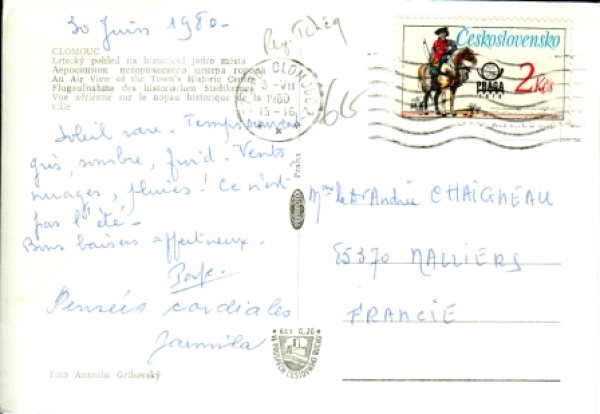 30 Juin 1980-
OLOMOUC
Letecký pohled na historické jádro města
Аэроснимок исторического центра города
An Air View of the Town's Historic Centre
Flugaufnahme des historischen Stadtkernes
Vue aérienne sur le noyau historique de la
Ville
OLOMOUC 2
3.-VII
1980
15-16
Československo
2 Kčs
PRAGA
1978
66
Soleil rare. Temps
gris, sombre, froid. Vents
nuages, pluies! Ce n'est
pas l'été-
Bons baisers affectueux.
Pensées cordiales
Jarmila
Praha
Mme le Dr Andrée CHAIGNEAU
85370 NALLIERS
FRANCIE
Kčs 0,20
VE PROSPĚCH CESTOVNÍHO RUCHU
Foto Antonín Gribovský